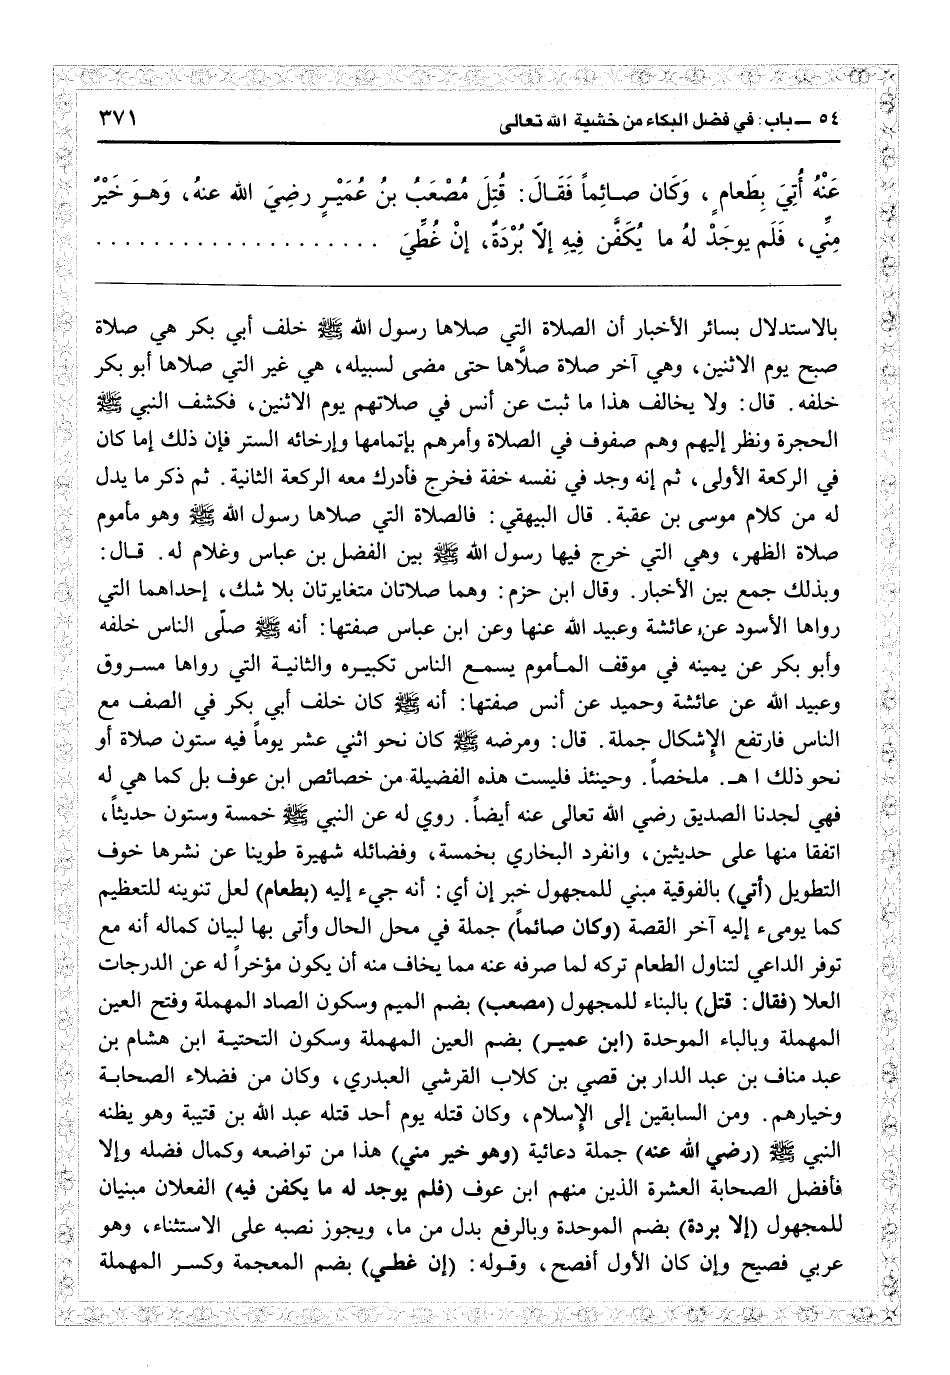 ٥٤ ــ باب: في فضل البكاء من خشية الله تعالى
٣٧١
عَنْهُ أُتِيَ بِطَعامٍ، وَكَان صـائِماً فَقَـالَ: قُتِلَ مُصْعَبُ بنُ عُمَيْـرٍ رضِيَ الله عنهُ، وَهـوَ خَيْرٌ
مِنِّي، فَلَم يوجَدْ لهُ ما يُكَفَّن فِيهِ إلّا بُرْدَةٌ، إنْ غُطِّيَ . . . . . . . . . . . . . . . . . . .
بالاستدلال بسائر الأخبار أن الصلاة التي صلاها رسول الله ﷺ خلف أبي بكر هي صلاة
صبح يوم الاثنين، وهي آخر صلاة صلَّاها حتى مضى لسبيله، هي غير التي صلاها أبو بكر
خلفه. قال: ولا يخالف هذا ما ثبت عن أنس في صلاتهم يوم الاثنين، فكشف النبي ﷺ
الحجرة ونظر إليهم وهم صفوف في الصلاة وأمرهم بإتمامها وإرخائه الستر فإن ذلك إما كان
في الركعة الأولى، ثم إنه وجد في نفسه خفة فخرج فأدرك معه الركعة الثانية. ثم ذكر ما يدل
له من كلام موسى بن عقبة. قال البيهقي: فالصلاة التي صلاها رسول الله ﷺ وهو مأموم
صلاة الظهر، وهي التي خرج فيها رسول الله ﷺ بين الفضل بن عباس وغلام له. قـال:
وبذلك جمع بين الأخبار. وقال ابن حزم: وهما صلاتان متغايرتان بلا شك، إحداهما التي
رواها الأسود عن عائشة وعبيد الله عنها وعن ابن عباس صفتها: أنه ﷺ صلّى الناس خلفه
وأبو بكر عن يمينه في موقف المـأموم يسمـع الناس تكبيـره والثانيـة التي رواها مسـروق
وعبيد الله عن عائشة وحميد عن أنس صفتها: أنه ﷺ كان خلف أبي بكر في الصف مع
الناس فارتفع الإشكال جملة. قال: ومرضه ﷺ كان نحو اثني عشر يوماً فيه ستون صلاة أو
نحو ذلك ا هـ. ملخصاً. وحينئذ فليست هذه الفضيلة من خصائص ابن عوف بل كما هي له
فهي لجدنا الصديق رضي الله تعالى عنه أيضاً. روي له عن النبي ﷺ خمسة وستون حديثاً،
اتفقا منها على حديثين، وانفرد البخاري بخمسة، وفضائله شهيرة طوينا عن نشرها خوف
التطويل (أتي) بالفوقية مبني للمجهول خبر إن أي: أنه جيء إليه (بطعام) لعل تنوينه للتعظيم
كما يومىء إليه آخر القصة (وكان صائماً) جملة في محل الحال وأتى بها لبيان كماله أنه مع
توفر الداعي لتناول الطعام تركه لما صرفه عنه مما يخاف منه أن يكون مؤخراً له عن الدرجات
العلا (فقال: قتل) بالبناء للمجهول (مصعب) بضم الميم وسكون الصاد المهملة وفتح العين
المهملة وبالباء الموحدة (ابن عميـر) بضم العين المهملة وسكون التحتية ابن هشام بن
عبد مناف بن عبد الدار بن قصي بن كلاب القرشي العبدري، وكان من فضلاء الصحابـة
وخيارهم. ومن السابقين إلى الإسلام، وكان قتله يوم أحد قتله عبد الله بن قتيبة وهو يظنه
النبي ﷺ (رضي الله عنه) جملة دعائية (وهو خير مني) هذا من تواضعه وكمال فضله وإلا
فأفضل الصحابة العشرة الذين منهم ابن عوف (فلم يوجد له ما يكفن فيه) الفعلان مبنيان
للمجهول (إلا بردة) بضم الموحدة وبالرفع بدل من ما، ويجوز نصبه على الاستثناء، وهو
عربي فصيح وإن كان الأول أفصح، وقـوله: (إن غطـي) بضم المعجمة وكسـر المهملة